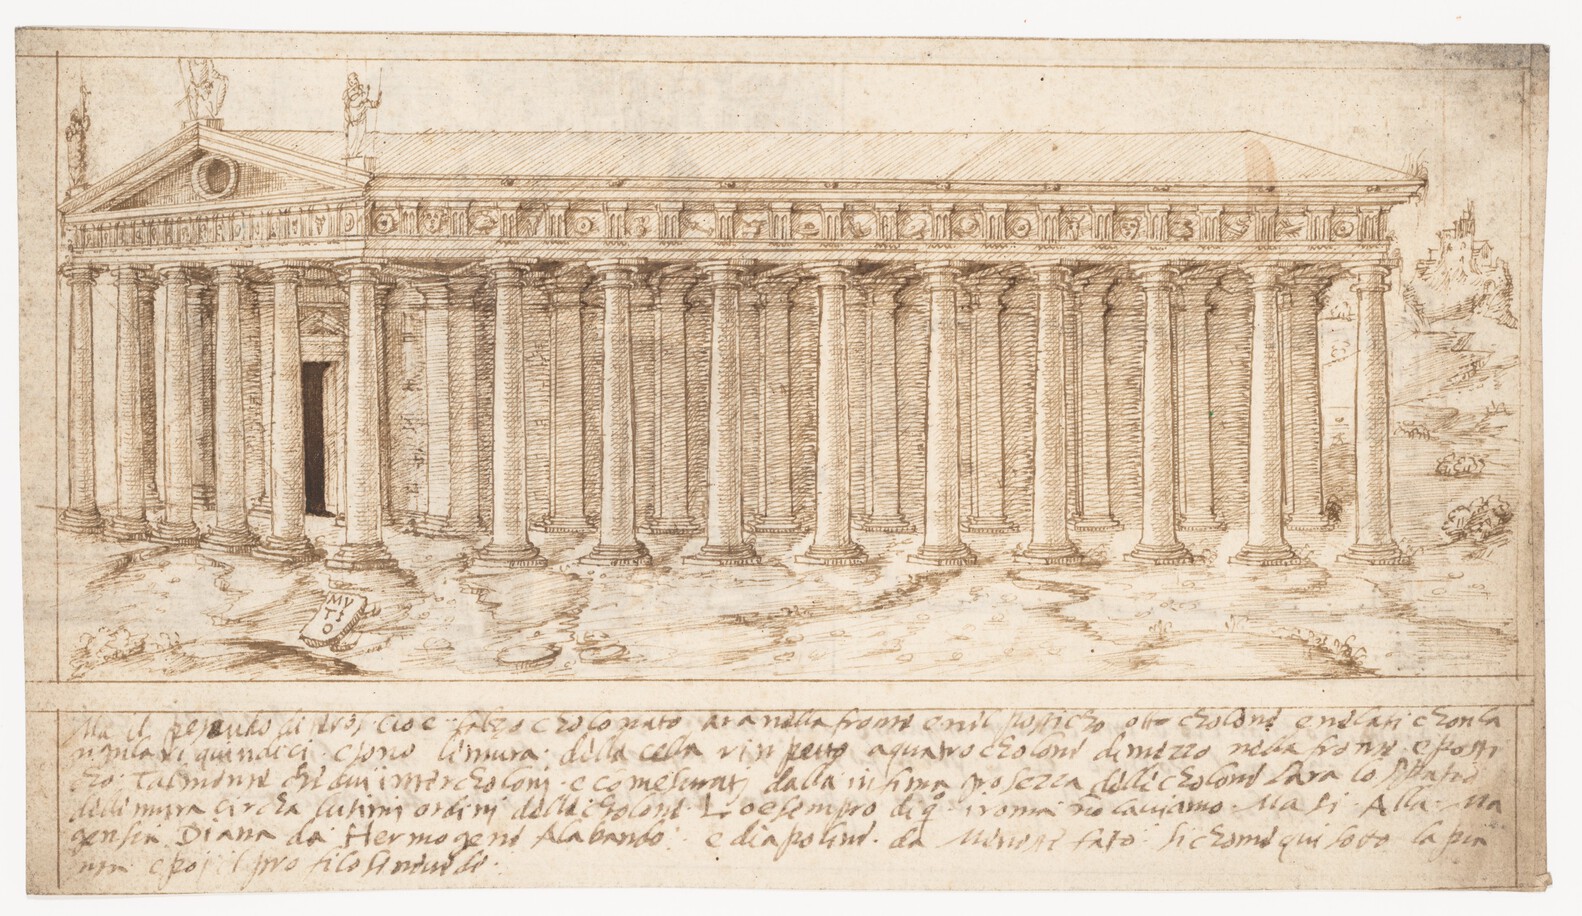 MV
TI
O
Ma il pseudo dipteros cioe falzo cholonato ara nella fronte e nel posticho otto cholone e nelati chonla
ngulari quindici e sono le mura della cella rinpetto a quatro cholone di mezzo nella fronte e posti
cho talmente che dui intercholoni e comesurati dalla infima grosezza delle cholone sara lo spatio
delle mura circha lultimi ordini delle cholone Lo esempro di q i roma nō laviamo Ma si Alla Ma
gensia Diana da Hermogene Alabando e di apoline da Mineste fato si chome qui soto la pia
nta e poi il profilo si